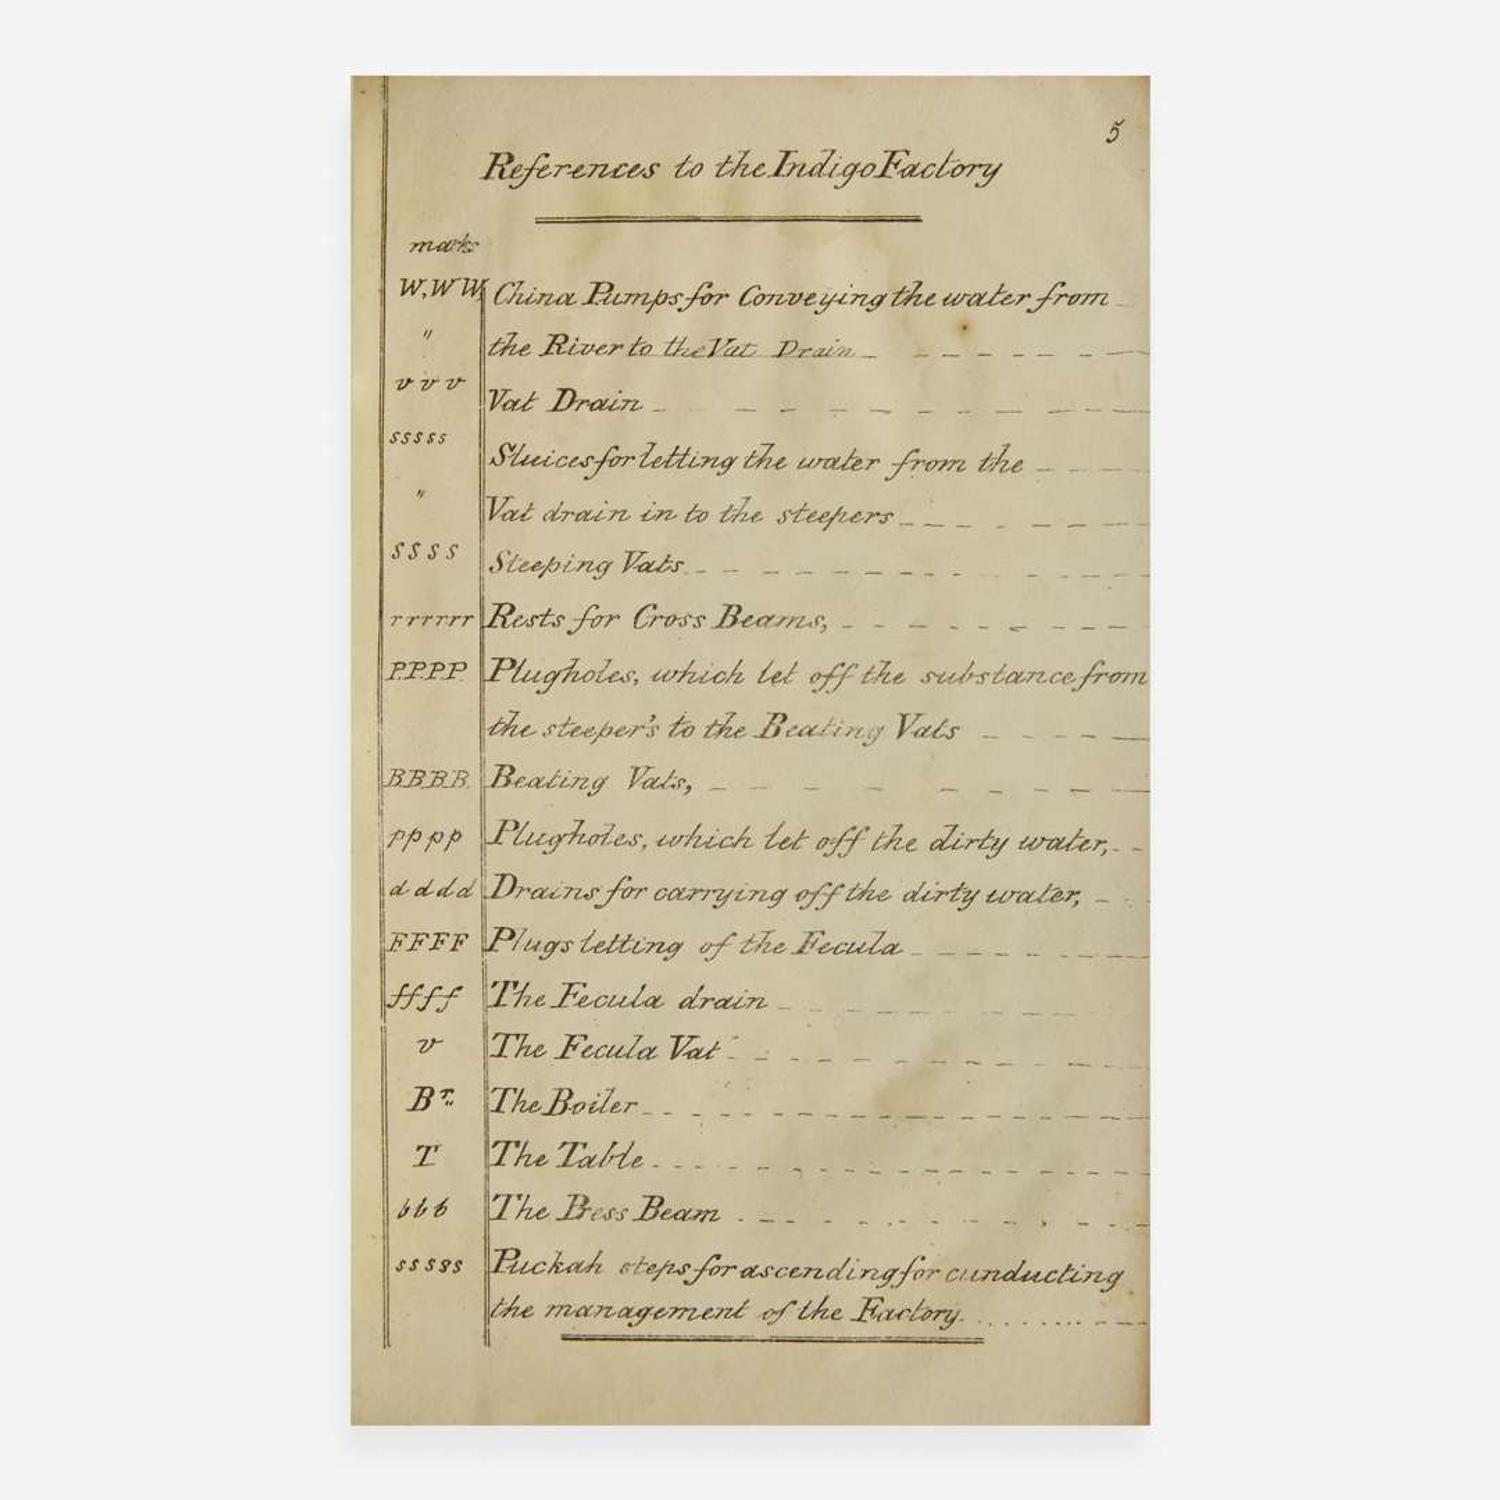 5
References to the Indigo Factory
marks
W, W W, China Pumps for Conveying the water from
" the River to the Vat Drain
v v v Vat Drain
sssss Sluices for letting the water from the
" Vat drain in to the steepers
SSSS Steeping Vats
rrrrrr Rests for Cross Beams,
P.P.P.P Plugholes, which let off the substance from
the steeper's to the Beating Vats
B.B.B.B. Beating Vats,
pppp Plugholes, which let off the dirty water,
d d d d Drains for carrying off the dirty water,
FFFF Plugs letting of the Fecula
ffff The Fecula drain
v The Fecula Vat
Br. The Boiler
T The Table
bbb The Press Beam
sssss Puckah steps for ascending for cunducting
the management of the Factory.